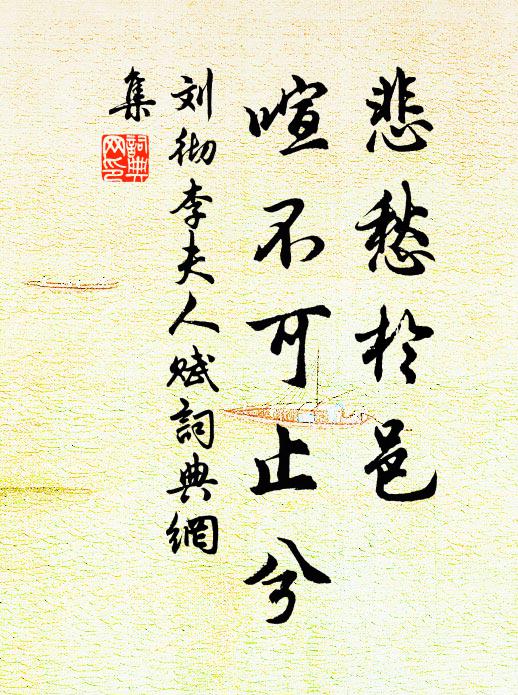 悲愁於邑
喧不可止兮
刘彻李夫人赋詞典網
集
詞典网印